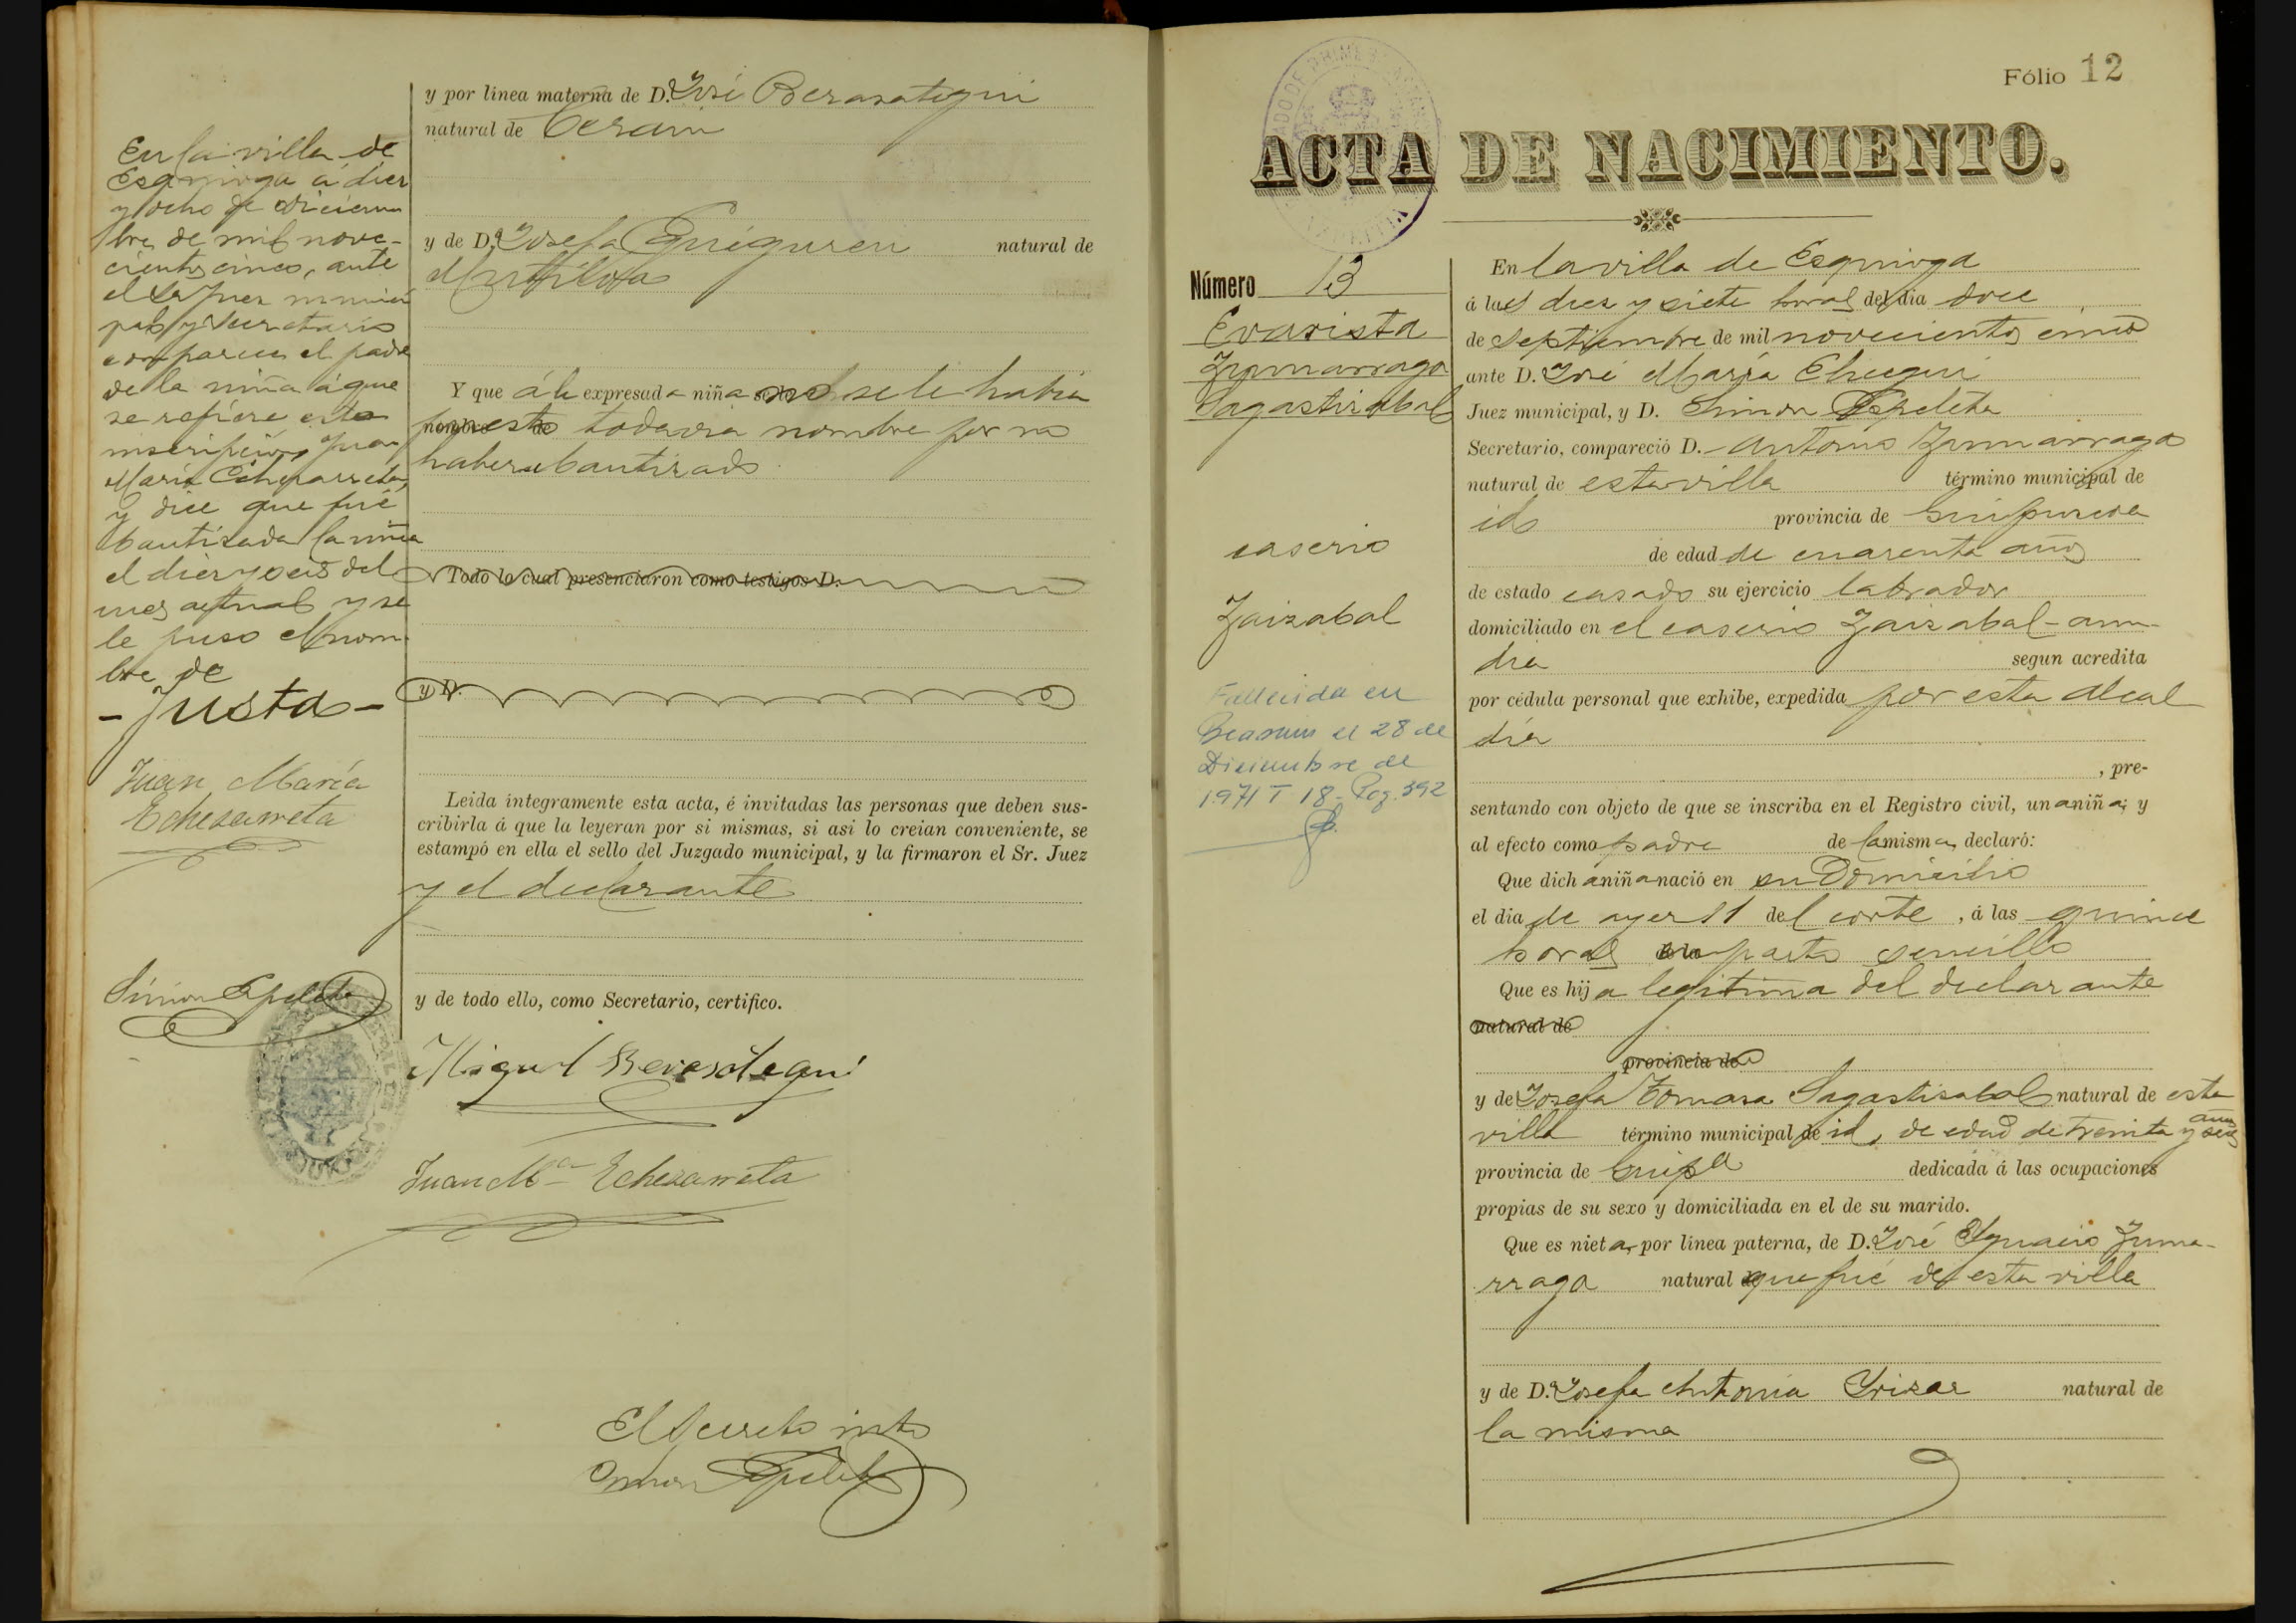 y por línea materna de D. José Berasategui
natural de Cerain
y de D.ª Josefa Eguiguren natural de
Mutiloa
Y que á la expresada niña no se le había
puesto todavia nombre por no
haberse bautizado.
Todo lo cual presenciaron como testigos D.
y D.
Leida íntegramente esta acta, é invitadas las personas que deben sus-
cribirla á que la leyeran por si mismas, si asi lo creian conveniente, se
estampó en ella el sello del Juzgado municipal, y la firmaron el Sr. Juez
y el declarante
y de todo ello, como Secretario, certifico.
Miguel Berasategui
Juan Mª Echezarreta
El Secreto into
Simon Apeleta
En la villa de
Esquioga á diez
y ocho de Diciem
bre de mil nove-
cientos cinco, ante
el Sr Juez munici
pal y Secretario
comparece el padre
de la niña á que
se refiere esta
inscripcion, Juan
María Echezarreta,
y dice que fué
bautizada la niña
el diez y seis del
mes actual y se
le puso el nom-
bre de
- Justa -
Juan María
Echezarreta
Simon Apeleta
Fólio 12
ACTA DE NACIMIENTO.
Número 13
Evarista
Zumarraga
Sagastizabal
caserio
Zaizabal
Fallecida en
Beasain el 28 de
Diciembre de
1971 T 18 - Pag. 392
En la villa de Esquioga
á las diez y siete horas del dia doce
de Septiembre de mil novecientos cinco
ante D. José María Echegui
Juez municipal, y D. Simon Apeleta
Secretario, compareció D. Antonio Zumarraga
natural de esta villa término municipal de
id provincia de Guipuzcoa
de edad de cuarenta años
de estado casado su ejercicio labrador
domiciliado en el caserio Zaizabal-aun-
dia segun acredita
por cédula personal que exhibe, expedida por esta Alcal
día
, pre-
sentando con objeto de que se inscriba en el Registro civil, una niña; y
al efecto como padre de la misma, declaró:
Que dicha niña nació en su Domicilio
el dia de ayer 11 del corte, á las quince
horas parto sencillo
Que es hija legitima del declarante
natural de
provincia de
y de Josefa Tomasa Sagastizabal natural de esta
villa término municipal de id, de edad de treinta y seis años
provincia de Guipa dedicada á las ocupaciones
propias de su sexo y domiciliada en el de su marido.
Que es nieta, por línea paterna, de D. José Ygnacio Zuma-
rraga natural que fué de esta villa
y de D.ª Josefa Antonia Yrizar natural de
la misma